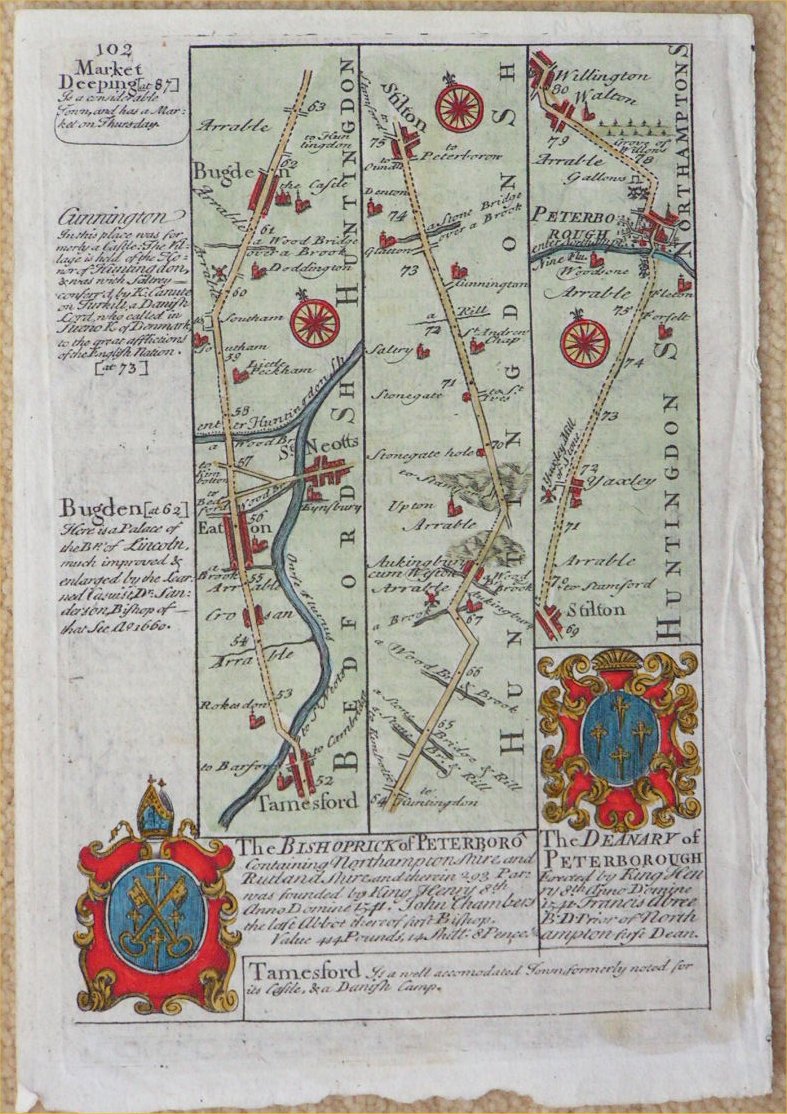 102
Market
Deeping [at 87]
Is a considerable
Town, and has a Mar:
ket on Thursday.
Cunnington
In this place was for
merly a Castle. The Vil
lage is held of the Ho
nor of Huntingdon,
& was with Saltrey
conferr'd by K. Canute
on Turkil a Danish
Lord, who called in
Sueno K. of Denmark
to the great afflictions
of the English Nation.
[at 73]
Bugden [at 62]
Here is a Palace of
the Bp. of Lincoln,
much improved &
enlarged by the Lear
ned Casuist, Dr. San
derson, Bishop of
that See Ao. 1660.
63
Arrable
to Hun
tingdon
62
Bugden
the Castle
Arrable
61
a Wood Bridge
over a Brook
Arrable
Doddington
60
Southam
Southam
59
Little
Peckham
58
enter Huntingdon Sh
a Wood Br
57
St. Neotts
to Kim
bolton
to Bed
ford
Wood Br
Eynsbury
56
Eaton
a
Brook
55
Arrable
Crosan
54
Arrable
Rokesdon
53
to St. Neots
to Cambridg
to Barford
52
Tamesford
BEDFORD SH
HUNTINGDON
Stilton
75
to
Peterborow
to
Oundle
Denton
74
a Stone Bridge
over a Brook
Glatton
73
Cunnington
a Rill
72
St. Andrew
Chap
Saltry
71
Stonegate
to St.
Ives
70
Stonegate hole
Upton
Arrable
Aukingbury
cum Weston
Arrable
a Wood
Brook
a Brook
67
66
a Wood Br & Brook
65
a Stone Bridge & Rill
a Stone Bri. & Rill
to
Huntingdon
HUNTINGDON SH
Willington
80
Walton
79
Grove of
Willows
78
Arrable
Gallows
PETERBO
ROUGH
enter Northampt.
Nine Flu.
Woodsone
Arrable
Fleton
75
Forfelt
74
73
Yaxley Mill
72
Yaxley
71
Arrable
70
to Stamford
Stilton
69
NORTHAMPTONS
HUNTINGDON S
The BISHOPRICK of PETERBORO
Containing Northampton shire and
Rutland shire and therein 293 Par
was founded by King Henry 8th
Anno Domine 1541. John Chambers
the last Abbot thereof first Bishop.
Value 414 Pounds, 14 Shill: 8 Pence
The DEANARY of
PETERBOROUGH
Erected by King Hen
ry 8th Anno Domine
1541. Francis Abree
B:D Prior of North
ampton first Dean.
Tamesford Is a well accomodated Town, formerly noted for
its Castle, & a Danish Camp.